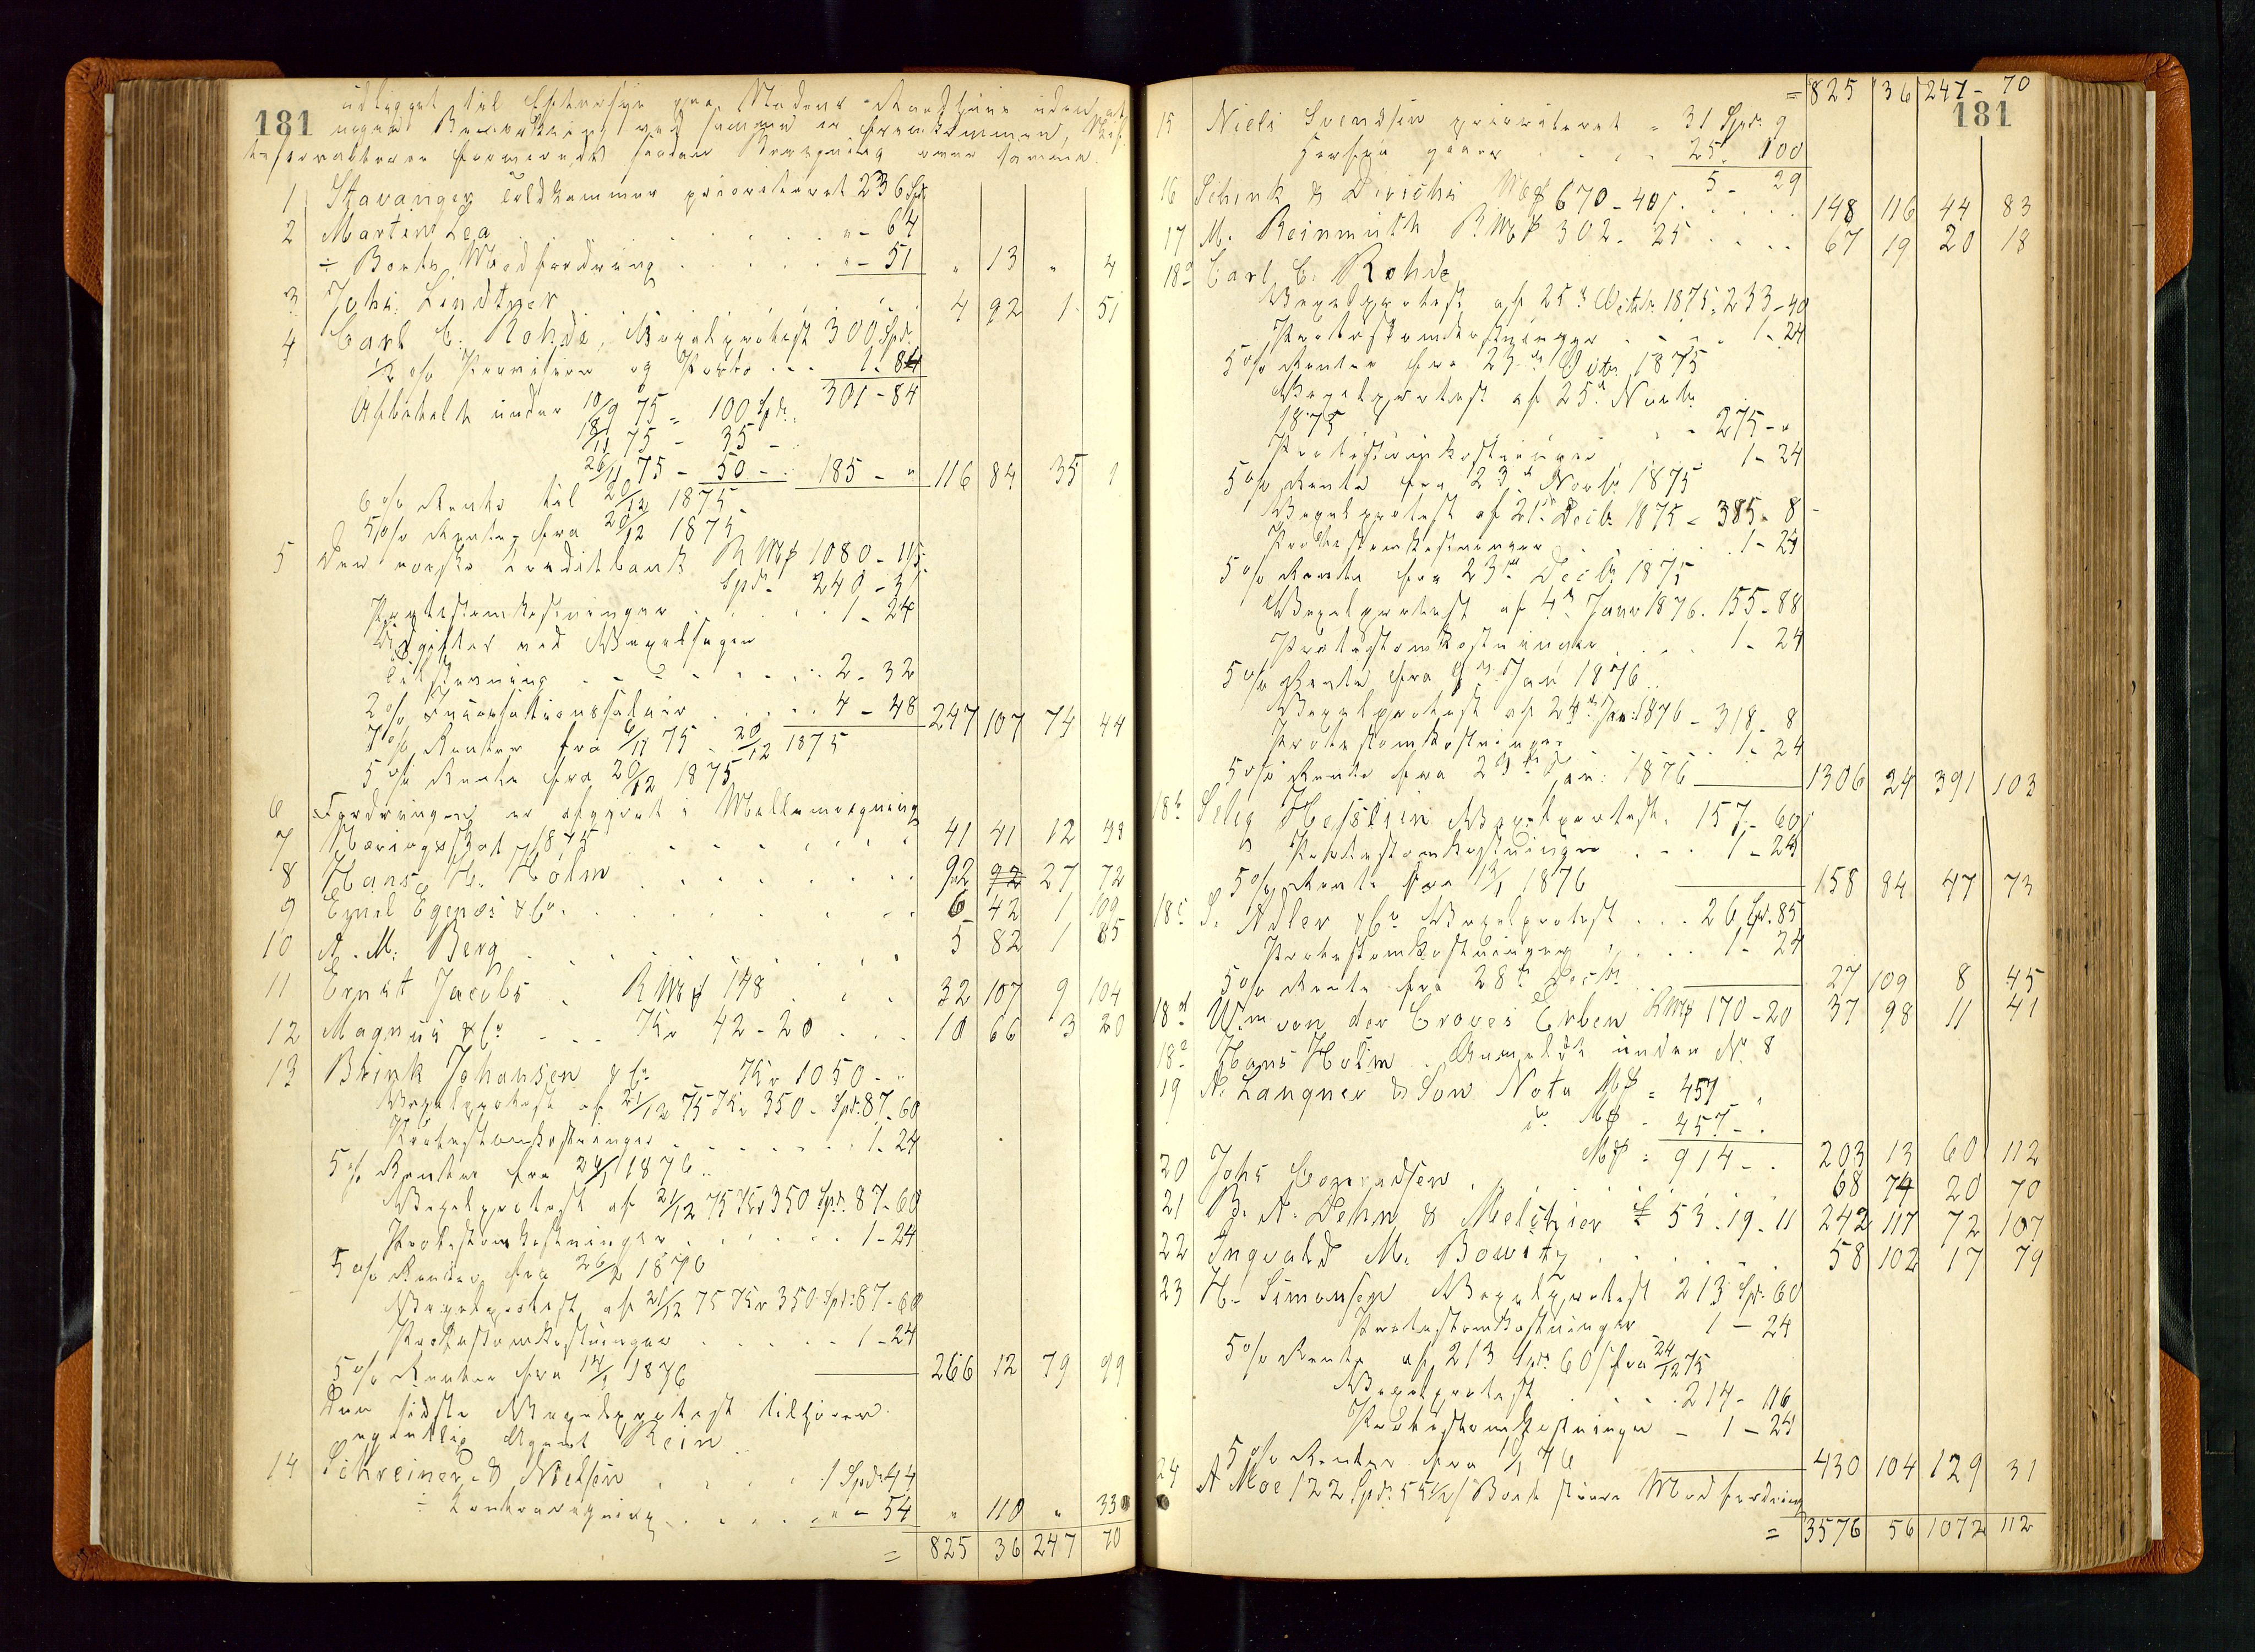 181
udlagget til Eftersyn paa Stadens Raadhuus uden at
nogen Bemærkning ved samme er fremkommen,
formerede saadan Beregning over samme.
1 Stavanger Toldkammer prioriteret 236 Spd.
2 Martin Lea . . . . . . " - 64
÷ Boets Modfordring . . . . . " - 51 " 13 " 4
3 Johs. Lindtner . . . 4 92 1 51
4 Carl C. Rohde, Vexelprotest 300 Spd.
1/2 % Provision og Porto . . . 1 - 84
301 - 84
Afbetalt under 10/9 75 = 100 Spd.
18/11 75 - 35 -
26/11 75 - 50 - 185 - " 116 84 35 1
6 % Rente til 20/12 1875
5 % Rente fra 20/12 1875
5 Den norske Creditbank RM₰ 1080 - 115.
Spd. 240 - 31
Protestomkostninger . . . 1 - 24
Udgifter ved Vexelsagen
Tilstevning . . . . . 2 - 32
2 % Incassationssalair . . . . 4 - 48 247 107 74 44
7 % Renter fra 6/11 75 - 20/12 1875
5 % Rente fra 20/12 1875
6 Fordringen er afgjort i Mellemregning
7 Næringsskat 1875 . . . . . 41 41 12 48
8 Hans H. Holm . . . . . 92 92 27 72
9 Emil Egenæs & Co. . . . . . 6 42 1 109
10 A. M. Berg . . . . . 5 82 1 85
11 Ernst Jacobs . RM₰ 148 . . . 32 107 9 104
12 Magnus & Co - - - Kr 42 - 20 . . . 10 66 3 20
13 Brink Johansen & Co Kr 1050 - "
Vexelprotest af 21/12 75 Kr 350 - Spd. 87 - 60
Protestomkostninger . . . . . 1 - 24
5 % Renter fra 24/1 1876
Vexelprotest af 21/12 75 Kr 350 Spd. 87 - 60
Protestomkostninger . . . . . 1 - 24
5 % Renter fra 26/2 1876
Vexelprotest af 21/12 75 Kr 350 Spd. 87 - 60
Protestomkostninger . . . . . 1 - 24
5 % Renter fra 14/1 1876 266 12 79 99
Den sidste Vexelprotest tilhører
egentlig Agent Rein
14 Schreiner & Nielsen . . . . 1 Spd. 44
÷ Kontraregning . . . . " - 54 " 110 " 33
= 825 36 247 70
= 825 36 247 - 70
181
15 Niels Svendsen prioriteret = 31 Spd. 9
Herfra gaaer . . . . 25 - 100
5 - 29
16 Schenk & Dirichs M₰ 670 - 40 . . . . . 148 116 44 83
17 M. Reinmuth RM₰ 302 - 25 . . . . 67 19 20 18
18a Carl C. Rohde
Vexelprotest af 25d Octbr. 1875 - 233 - 40
Protestomkostninger . . . . 1 - 24
5 % Renter fra 23d Octbr. 1875
Vexelprotest af 25d Novbr.
1875 . - 275 - "
Protestomkostninger . 1 - 24
5 % Rente fra 23d Novbr. 1875
Vexelprotest af 21d Decbr. 1875 - 385 - 8
Protestomkostninger . . . . . 1 - 24
5 % Rente fra 23d Decbr. 1875
Vexelprotest af 4d Janr 1876. 155 - 88
Protestomkostninger . . . . 1 - 24
5 % Rente fra Jan 1876
Vexelprotest af 24d Jan. 1876 - 318 - 8
Protestomkostninger . . . 1 - 24
5 % Rente fra 23d Jan. 1876 1306 24 391 103
18b Selig Hesslein Vexelprotest. 157 - 60
Protestomkostninger . . . 1 - 24
5 % Rente fra 13/1 1876 158 84 47 73
18c S. Adler & Co Vexelprotest . . . 26 Spd. 85
Protestomkostninger . . . . 1 - 24
5 % Rente fra 28d Decbr 27 109 8 45
18d Wm von der Croves Erben RM₰ 170 - 20 37 98 11 41
18e Hans Holm . Anmeldt under No 8
19 A. Langner & Son Nota M₰ = 457 "
do M₰ - 457 - .
M₰ = 914 - . 203 13 60 112
20 Johs Conradsen . . . . . 68 74 20 70
21 B. A. Dehn & Melchior £ 53 . 19 . 11 242 117 72 107
22 Ingvald M. Bowitz . . . . . 58 102 17 79
23 H. Simonsen Vexelprotest 213 Spd. 60
Protestomkostninger 1 - 24
5 % Rente af 213 Spd. 60 fra 24/12 75
Vexelprotest . . . . 214 - 116
Protestomkostninger - 1 - 24
5 % Renter fra 1/1 76 430 104 129 31
24 A Moe 122 Spd. 55 1/2 Boets større Modfordring
= 3576 56 1072 112